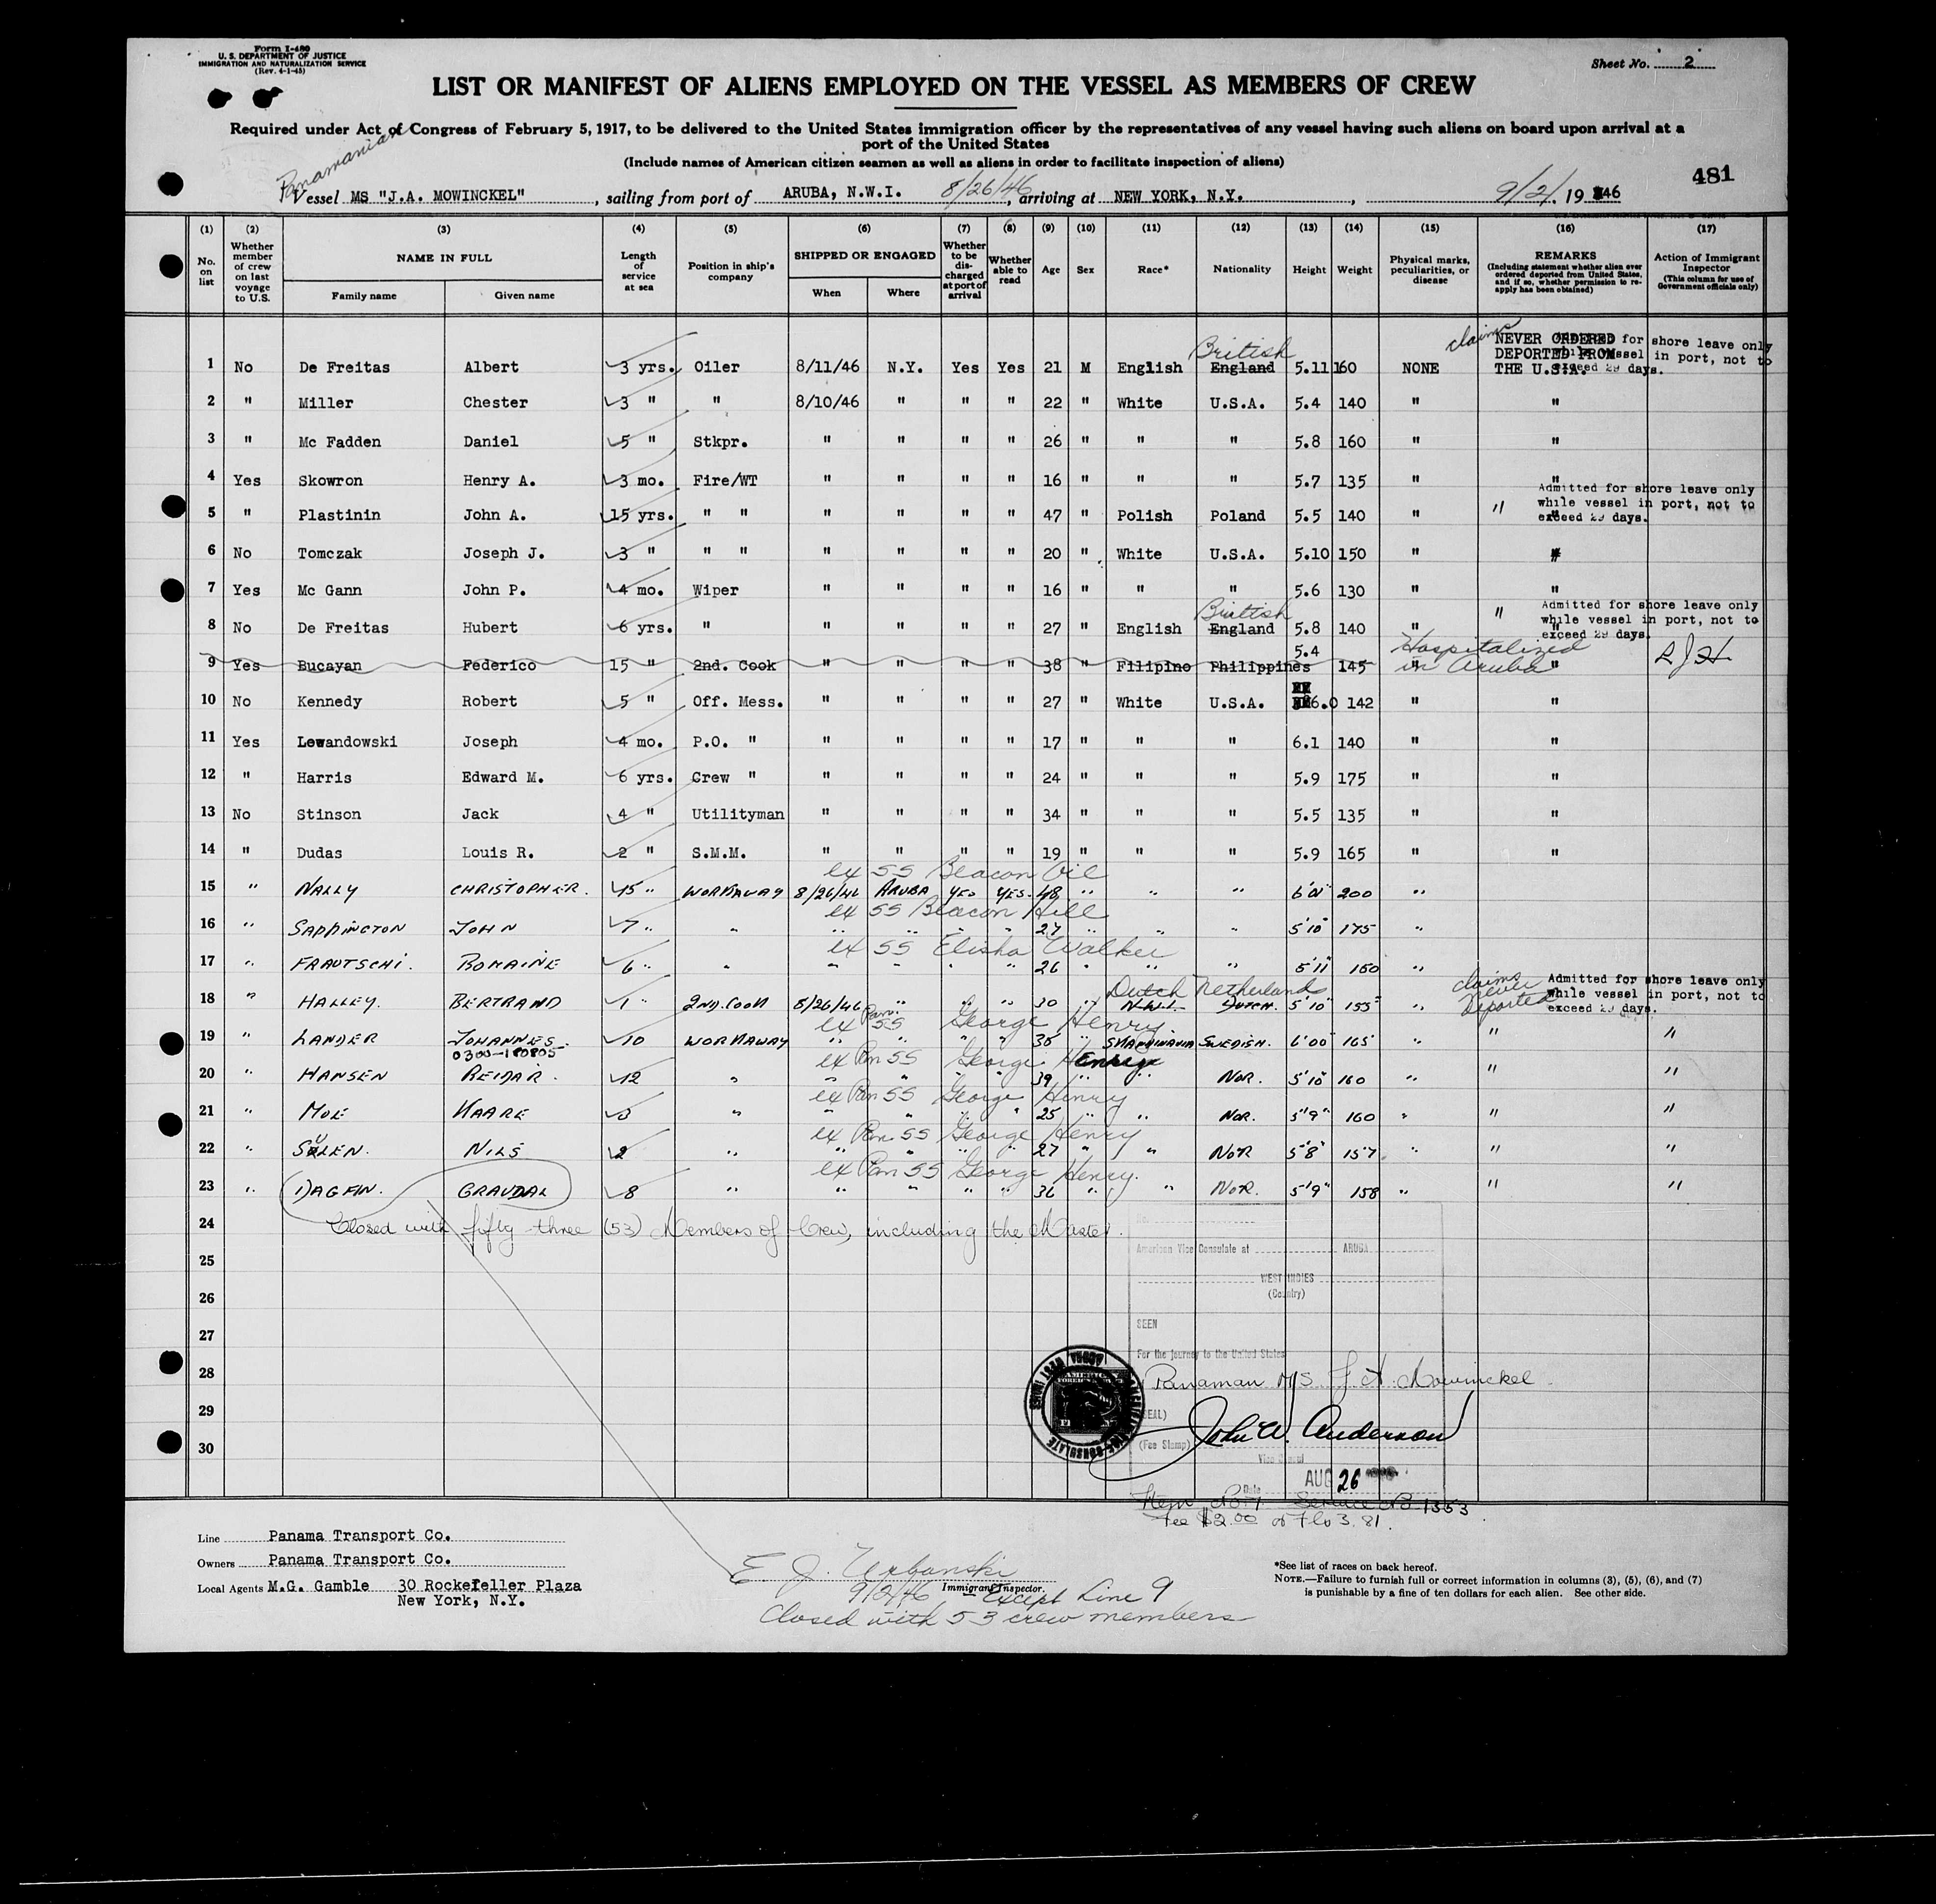 Form I-480
U. S. DEPARTMENT OF JUSTICE
IMMIGRATION AND NATURALIZATION SERVICE
(Rev. 4-1-45)
Sheet No. 2
LIST OR MANIFEST OF ALIENS EMPLOYED ON THE VESSEL AS MEMBERS OF CREW
Required under Act of Congress of February 5, 1917, to be delivered to the United States immigration officer by the representatives of any vessel having such aliens on board upon arrival at a
port of the United States
(Include names of American citizen seamen as well as aliens in order to facilitate inspection of aliens)
481
Panamanian
Vessel MS "J.A. MOWINCKEL", sailing from port of ARUBA, N.W.I. 8/26/46, arriving at NEW YORK, N.Y., 9/2/, 1946
(1) (2) (3) (4) (5) (6) (7) (8) (9) (10) (11) (12) (13) (14) (15) (16) (17)
No. on list
Whether member of crew on last voyage to U.S.
NAME IN FULL
Family name
Given name
Length of service at sea
Position in ship's company
SHIPPED OR ENGAGED
When
Where
Whether to be discharged at port of arrival
Whether able to read
Age
Sex
Race*
Nationality
Height
Weight
Physical marks, peculiarities, or disease
REMARKS
(Including statement whether alien ever ordered deported from United States, and if so, whether permission to reapply has been obtained)
Action of Immigrant Inspector
(This column for use of Government officials only)
claims NEVER ORDERED DEPORTED FROM THE U.S.A.
for shore leave only
while vessel in port, not to
exceed 29 days.
British
1 No De Freitas Albert 3 yrs. Oiler 8/11/46 N.Y. Yes Yes 21 M English England 5.11 160 NONE
2 " Miller Chester 3 " " 8/10/46 " " " 22 " White U.S.A. 5.4 140 " "
3 " Mc Fadden Daniel 5 " Stkpr. " " " " 26 " " " 5.8 160 " "
4 Yes Skowron Henry A. 3 mo. Fire/WT " " " " 16 " " " 5.7 135 " "
Admitted for shore leave only
while vessel in port, not to
exceed 29 days.
5 " Plastinin John A. 15 yrs. " " " " " " 47 " Polish Poland 5.5 140 " "
6 No Tomczak Joseph J. 3 " " " " " " " 20 " White U.S.A. 5.10 150 " "
7 Yes Mc Gann John P. 4 mo. Wiper " " " " 16 " " " 5.6 130 " "
British
Admitted for shore leave only
while vessel in port, not to
exceed 29 days.
8 No De Freitas Hubert 6 yrs. " " " " " 27 " English England 5.8 140 " "
Hospitalized in Aruba
9 Yes Bucayan Federico 15 " 2nd. Cook " " " " 38 " Filipino Philippines 5.4 145 " "
10 No Kennedy Robert 5 " Off. Mess. " " " " 27 " White U.S.A. 6.0 142 " "
11 Yes Lewandowski Joseph 4 mo. P.O. " " " " " 17 " " " 6.1 140 " "
12 " Harris Edward M. 6 yrs. Crew " " " " " 24 " " " 5.9 175 " "
13 No Stinson Jack 4 " Utilityman " " " " 34 " " " 5.5 135 " "
14 " Dudas Louis R. 2 " S.M.M. " " " " 19 " " " 5.9 165 " "
ex SS Beacon Oil
15 " NALLY CHRISTOPHER. 15 " WORKAWAY 8/26/46 ARUBA YES YES. 48 " " " 6'01" 200 "
ex SS Beacon Hill
16 " SAPPINGTON JOHN 7 " " " " " " 27 " " " 5'10" 175 "
ex SS Elisha Walker
17 " FRAUTSCHI. ROMAINE 6 " " " " " " 26 " " " 5'11" 150 "
Dutch Netherland
claims never deported
Admitted for shore leave only
while vessel in port, not to
exceed 29 days.
18 " HALLEY. BERTRAND 1 " 2ND. COOK 8/26/46 " " " 30 " N.W.I. DUTCH. 5'10" 155 "
ex Pan. SS George Henry.
19 " LANDER JOHANNES. 10 WORKAWAY " " " " 36 " SKANDINAVIA SWEDISH. 6'00" 165 " " "
0300-180805
ex Pan SS George Henry
20 " HANSEN REIDAR. 12 " " " " " 39 " " NOR. 5'10" 160 " " "
ex Pan SS George Henry
21 " MOE KAARE 3 " " " " " 25 " " NOR. 5'9" 160 " " "
ex Pan. SS George Henry
22 " SULEN. NILS 2 " " " " " 27 " " NOR 5'8" 157. " " "
ex Pan SS George Henry.
23 " DAGFIN. GRAVDAL 8 " " " " " 36 " " NOR. 5'9" 158 " " "
24 Closed with fifty three (53) Members of Crew, including the Master.
25
26
27
28
29
30
American Vice Consulate at ARUBA
WEST INDIES
(Country)
SEEN
For the journey to the United States
Panaman M/S J A Mowinckel
(SEAL)
John W. Anderson
(Fee Stamp)
Vice Consul
AUG 26
Date
Item No 7. Service No 1353
Fee $2.00 or Fls 3.81.
Line Panama Transport Co.
Owners Panama Transport Co.
Local Agents M.G. Gamble 30 Rockefeller Plaza
New York, N.Y.
E J. Urbanski
9/2/46 Immigrant Inspector.
Except Line 9
Closed with 53 crew members
*See list of races on back hereof.
NOTE.—Failure to furnish full or correct information in columns (3), (5), (6), and (7)
is punishable by a fine of ten dollars for each alien. See other side.